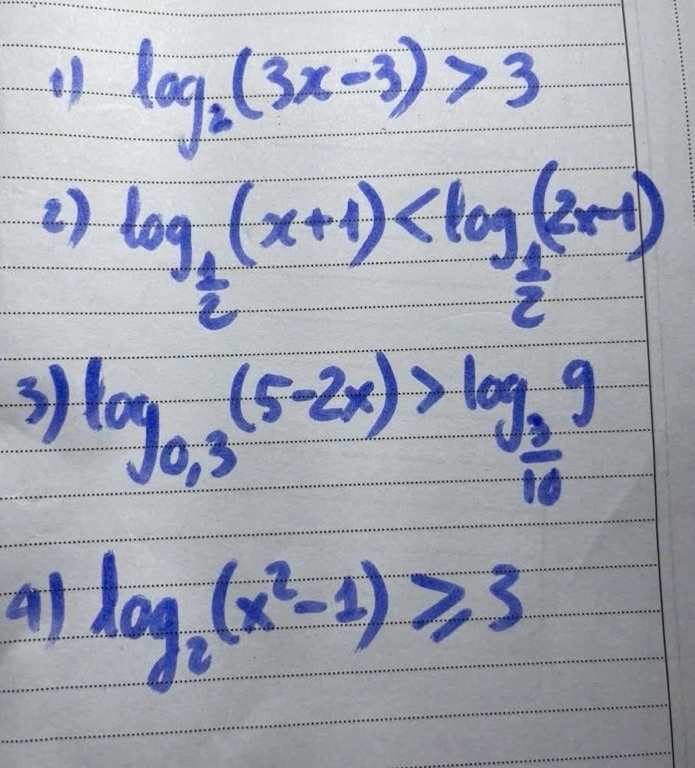 1) log₂(3x-3) > 3
2) log_{1/2}(x+1) < log_{1/2}(2x-1)
3) log_{0,3}(5-2x) > log_{3/10} 9
4) log₂(x²-1) ≥ 3